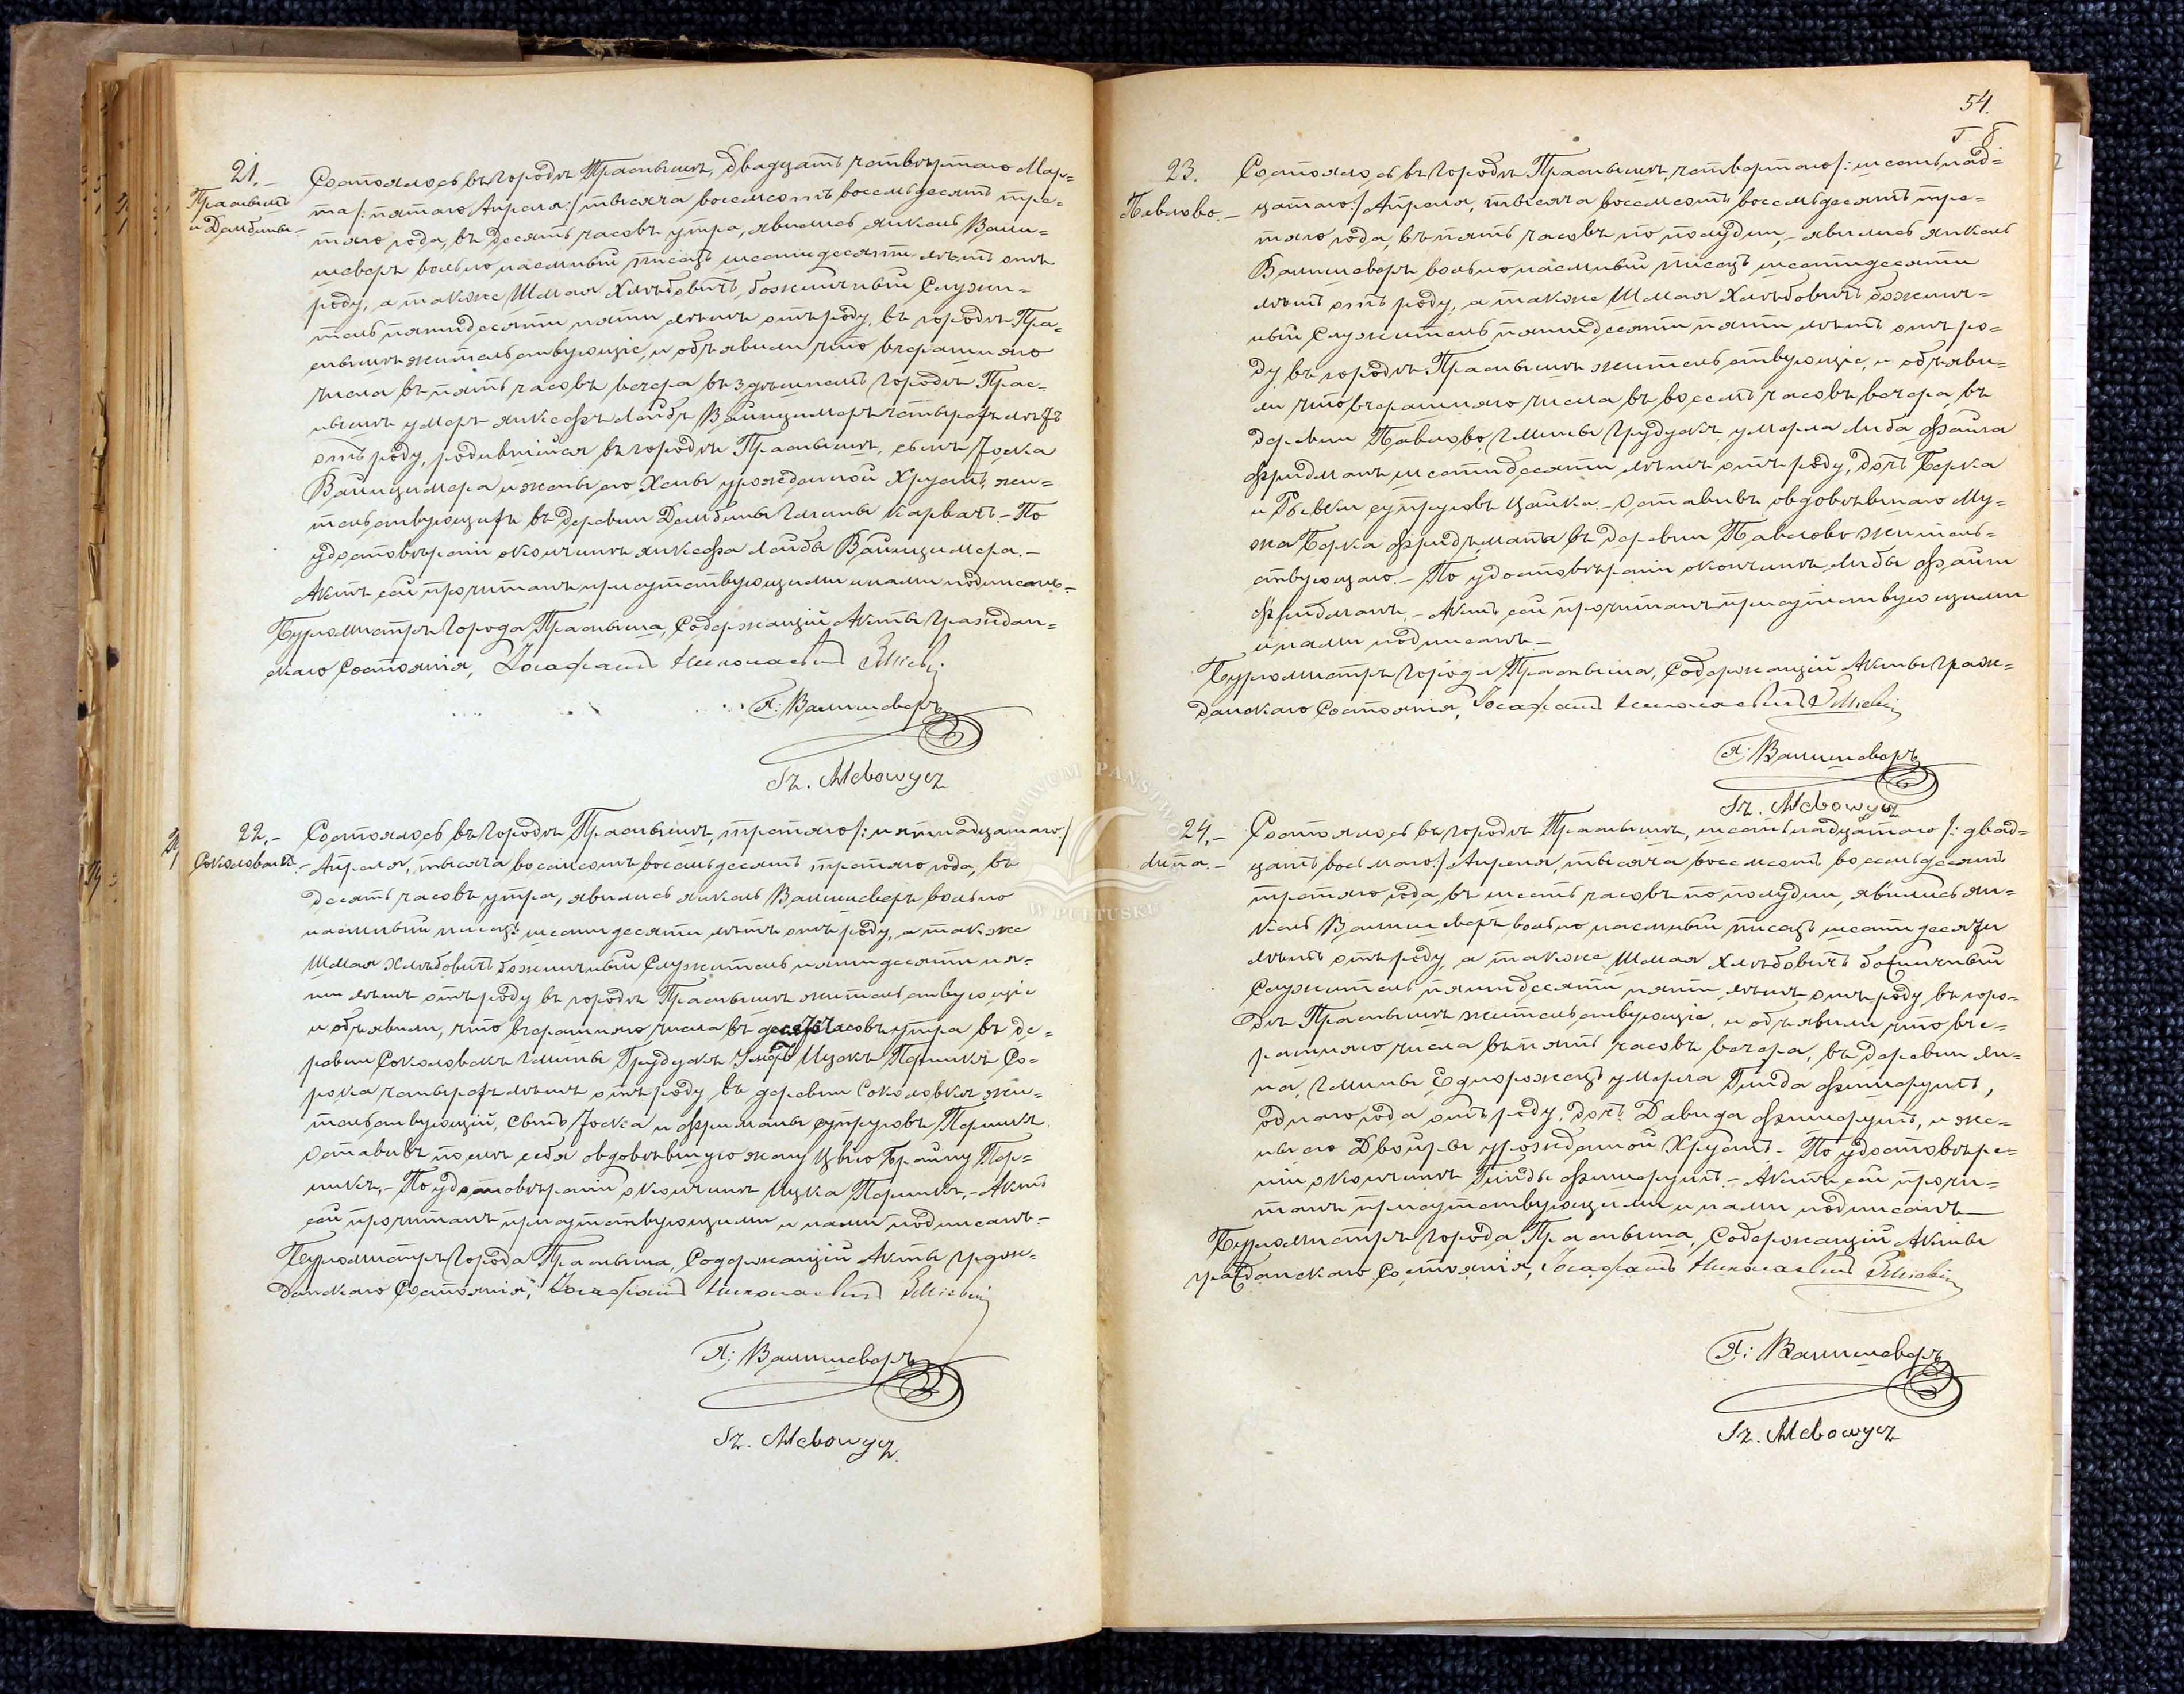 21.-
Праснышъ
и Дембины.-
Состоялось въ городѣ Праснышѣ, двадцать четвертаго Мар=
та /: пятаго Апреля :/ тысяча восемсотъ восемьдесятъ тре=
тяго года, въ десять часовъ утра, явились Янкель Вали=
шеверъ вольно наемный писецъ шестидесяти лѣтъ отъ
роду, а также Шмая Хлѣбовичъ божничный Служи=
тель пятидесяти пяти лѣтъ отъ роду, въ городѣ Пра=
снышѣ жительствующіе, и объявили что вчерашняго
числа въ пять часовъ вечера въ здѣшнемъ городѣ Прас=
нышѣ умеръ Янкефъ Лейбъ Вайнцимеръ четырехъ лѣтъ
отъ роду, родившійся въ городѣ Праснышѣ, сынъ Іоска
Вайнцимера и жены его Ханы урожденной Хрустъ, жи=
тельствующихъ въ деревни Дембины Гмины Карвачъ - По
удостовѣреніи окончинѣ Янкефа Лейбы Вайнцимера.-
Актъ сей прочитанъ присутствующими и нами подписанъ.-
Бурмистръ Города Прасныша, Содержащій Акты Граждан=
скаго Состоянія, Іосафатъ Николаевичъ
Я: Валишеверъ
Sz. Chlebowycz
22.-
Соколовакъ.-
Состоялось въ Городѣ Праснышѣ, третяго /: пятнадцатаго :/
Апреля, тысяча восемсотъ восемьдесятъ третяго года, въ
десять часовъ утра, явились Янкель Валишеверъ вольно
наемный писецъ шестидесяти лѣтъ отъ роду, а также
Шмая Хлѣбовичъ божничный Служитель пятидесяти пя=
ти лѣтъ отъ роду въ городѣ Праснышѣ жительствующіе
и объявили, что вчерашняго числа въ десять часовъ утра въ де=
ревни Соколовакъ Гмины Грудускъ умеръ Ицекъ Перникъ Со=
рока четырехъ лѣтъ отъ роду, въ деревни Соколовкѣ жи=
тельствующій, сынъ Іоска и Фриманы супруговъ Перникъ.
Оставивъ послѣ себя овдовѣвшую жену Цвію Брайну Пер=
никъ.- По удостовѣреніи окончинѣ Ицка Перникъ.- Актъ
сей прочитанъ присутствующими и нами подписанъ.-
Бурмистръ Города Прасныша, Содержащій Акты Граж=
данскаго Состоянія, Іосафатъ Николаевичъ
Я: Валишеверъ
Sz. Chlebowycz.
54.
23.
Павлово.-
Состоялось въ Городѣ Праснышѣ, четвертаго /: шестьнад=
цатаго :/ Апреля, тысяча восемсотъ восемьдесятъ тре=
тяго года, въ пять часовъ по полудни,- явились Янкель
Валишеверъ вольно наемный писецъ шестидесяти
лѣтъ отъ роду, а также Шмая Хлѣбовичъ божнич=
ный Служитель пятидесяти пяти лѣтъ отъ ро=
ду, въ городѣ Праснышѣ жительствующіе, и объяви=
ли что вчерашняго числа въ восемь часовъ вечера, въ
деревни Павлово, Гмины Грудускъ, умерла Либа Файга
Фридманъ шестидесяти лѣтъ отъ роду, дочь Берка
и Ривки супруговъ Цайка.- Оставивъ овдовѣвшаго Му=
жа Берка Фридъмана въ деревни Павлово житель=
ствующаго.- По удостовѣреніи окончинѣ Либы Файги
Фридманъ.- Актъ сей прочитанъ присутствующими
и нами подписанъ.-
Бурмистръ Города Прасныша, Содержащій Акты Граж=
данскаго Состоянія, Іосафатъ Николаевичъ
Я: Валишеверъ
Sz. Chlebowycz
24.-
Липа.-
Состоялось въ Городѣ Праснышѣ, шестьнадцатаго /: двад=
цать восьмаго :/ Апреля, тысяча восемсотъ восемьдесятъ
третяго года, въ шесть часовъ по полудни, явились Ян=
кель Валишеверъ вольно наемный писецъ шестидесяти
лѣтъ отъ роду, а также Шмая Хлѣбовичъ божничный
Служитель пятидесяти пяти лѣтъ отъ роду въ горо=
дѣ Праснышѣ жительствующіе, и объявили что вче=
рашняго числа въ пять часовъ вечера, въ деревни Ли=
па, Гмины Еднорожецъ умерла Гинда Финкрутъ,
однаго года отъ роду, дочь Давида Финкрутъ, и же=
ны его Двойры урожденной Хрустъ.- По удостовѣре=
ніи окончинѣ Гинды Финкрутъ.- Актъ сей прочи=
танъ присутствующими и нами подписанъ.-
Бурмистръ Города Прасныша, Содержащій Акты
Гражданскаго Состоянія, Іосафатъ Николаевичъ
Я: Валишеверъ
Sz. Chlebowycz
ARCHIWUM PAŃSTWOWE
W PUŁTUSKU